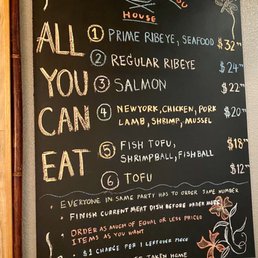 HOUSE
ALL
YOU
CAN
EAT
① PRIME RIBEYE, SEAFOOD $32
② REGULAR RIBEYE $24
③ SALMON $22
④ NEWYORK, CHICKEN, PORK $20
LAMB, SHRIMP, MUSSEL
⑤ FISH TOFU, $18
SHRIMPBALL, FISHBALL
⑥ TOFU $12
• EVERYONE IN SAME PARTY HAS TO ORDER SAME NUMBER
• FINISH CURRENT MEAT DISH BEFORE ORDER MORE
• ORDER AS MUCH OF EQUAL OR LESS PRICED
ITEMS AS YOU WANT
• $1 CHARGE PER 1 LEFTOVER PIECE
TAKEN HOME